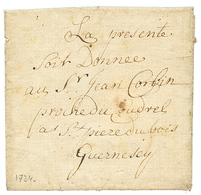 La presente
soit Donnee
au Sr. Jean Corbin
proche du Coudrel
a St. pierre du bois
Guernesey
1724.